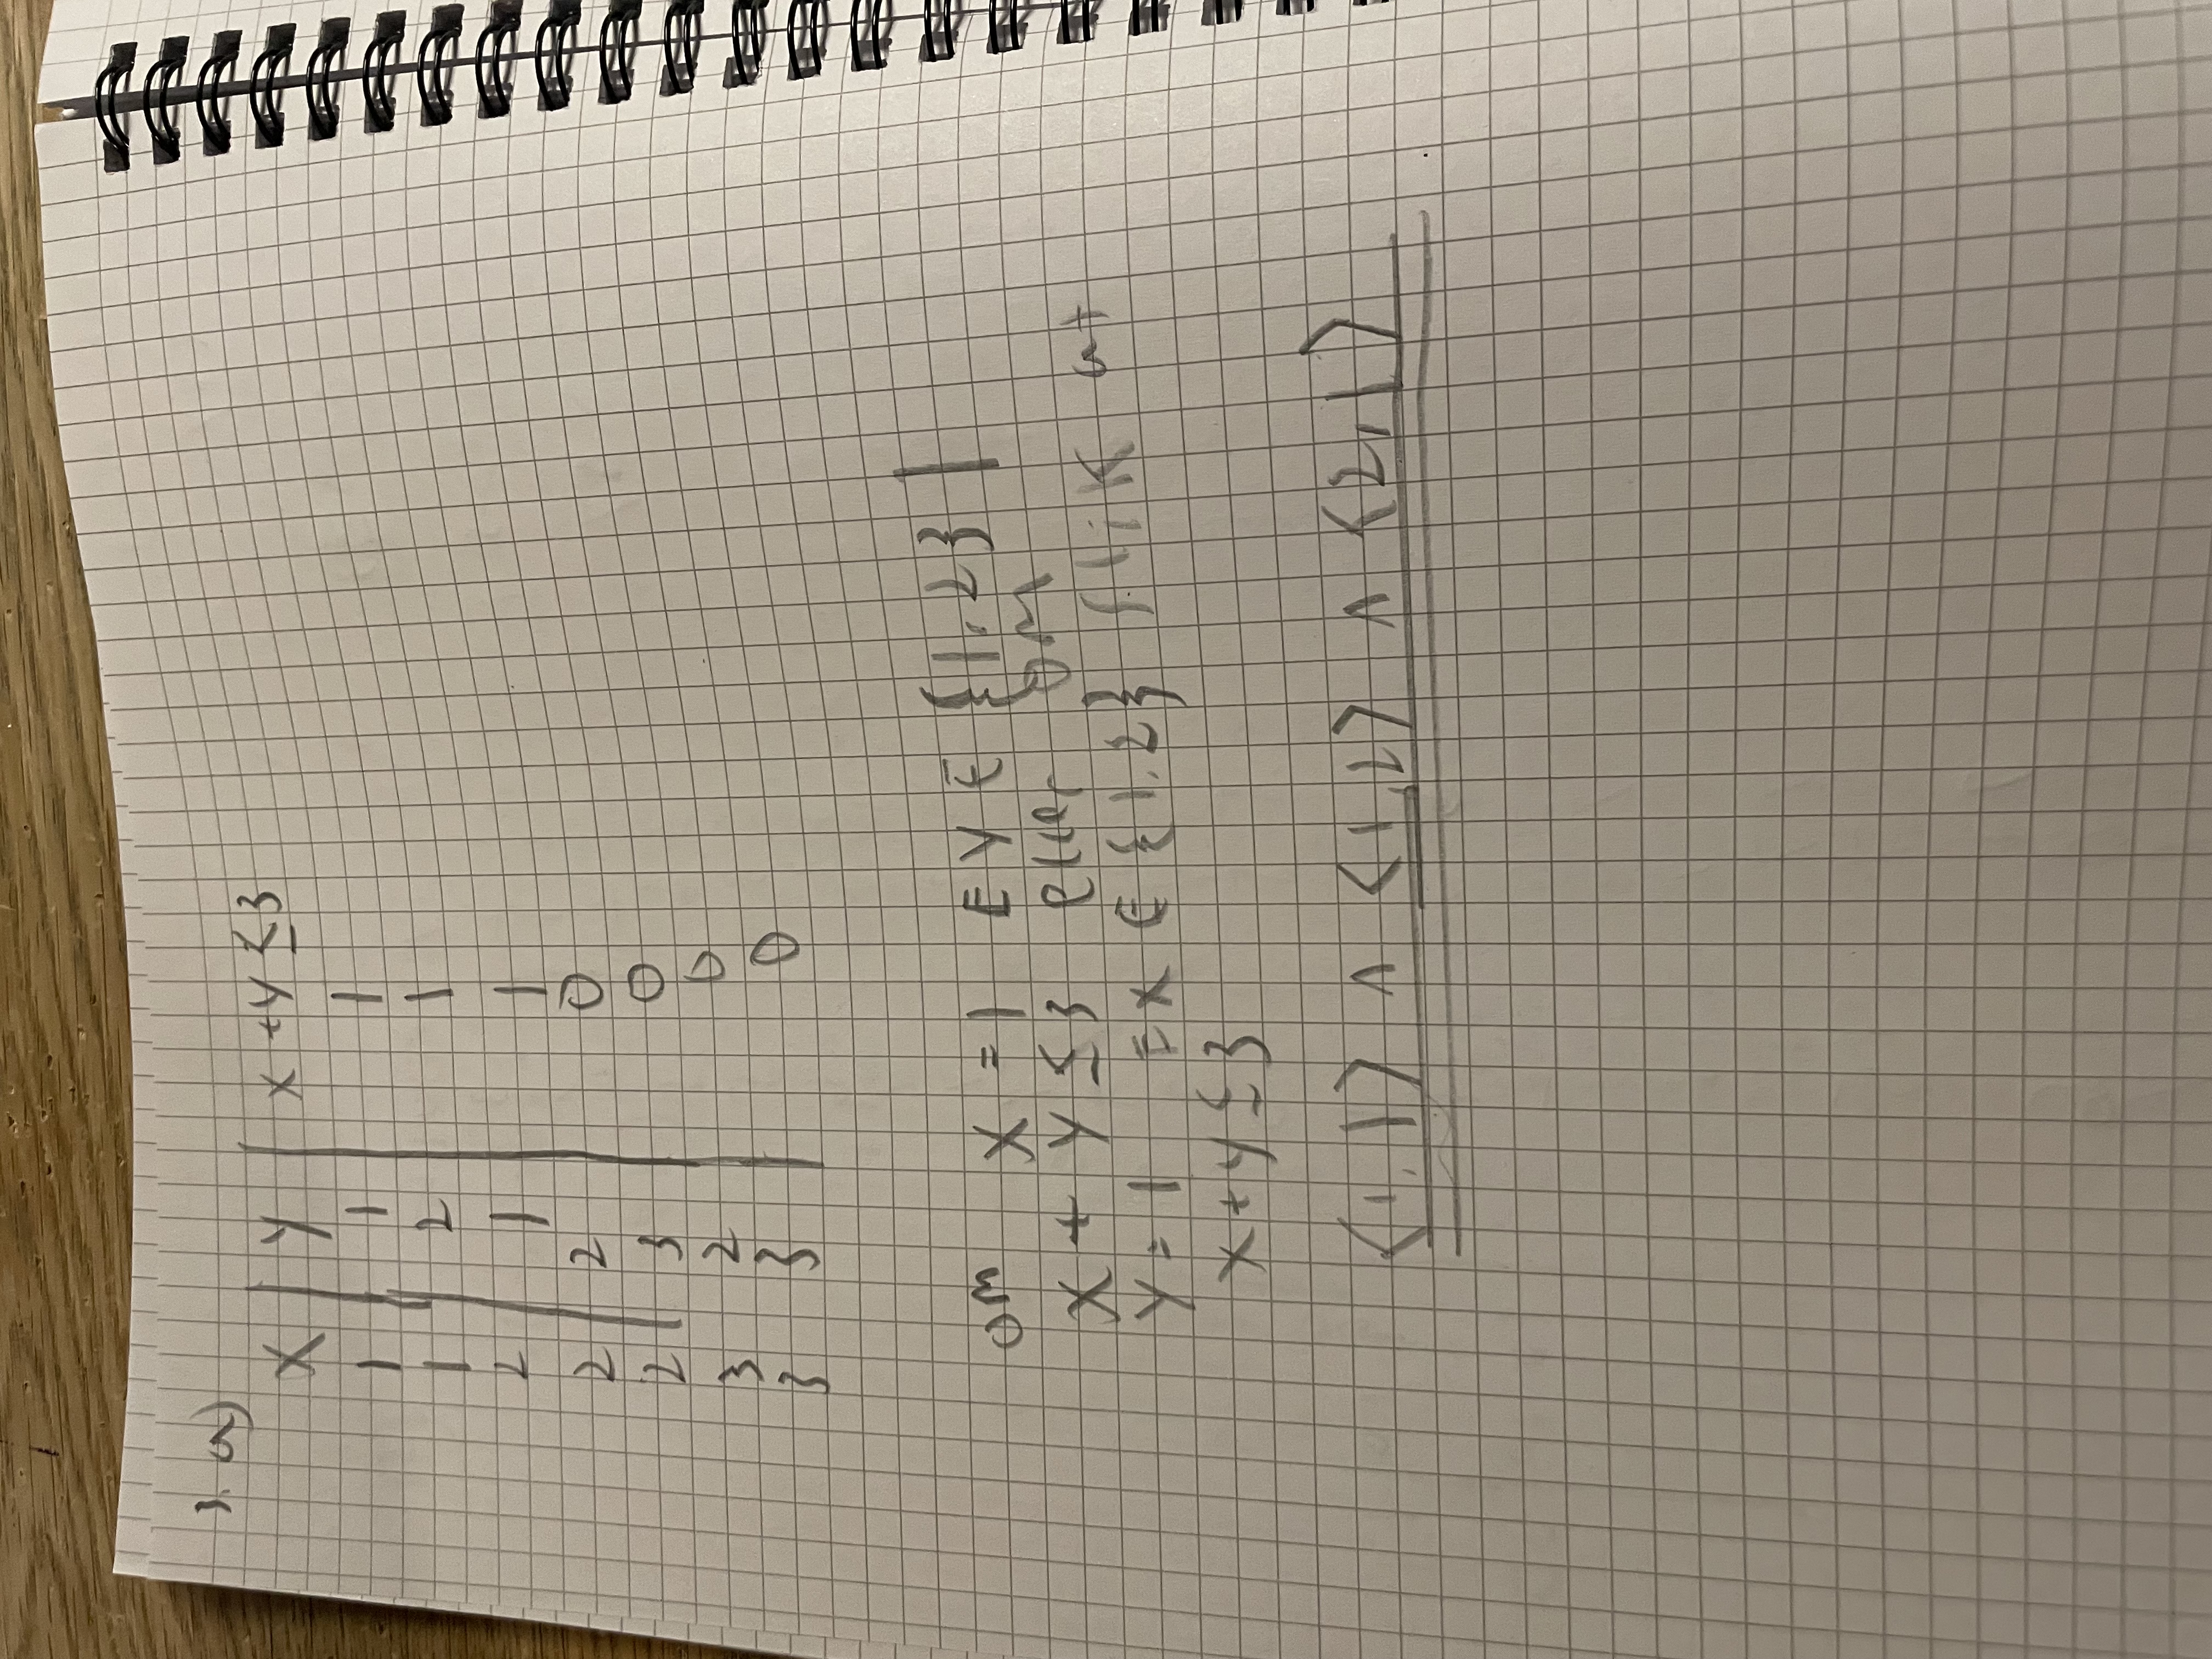 3. a)
X | Y | x + y ≤ 3
1 | 1 | 1
1 | 2 | 1
2 | 1 | 1
2 | 2 | 0
2 | 3 | 0
3 2 | 0
3 3 | 0
om x = 1 E y ∈ {1,2} |
x + y ≤ 3 eller om
y = 1 E x ∈ {1,2} slik at
x + y ≤ 3
⟨1,1⟩ ∧ ⟨1,2⟩ ∧ ⟨2,1⟩